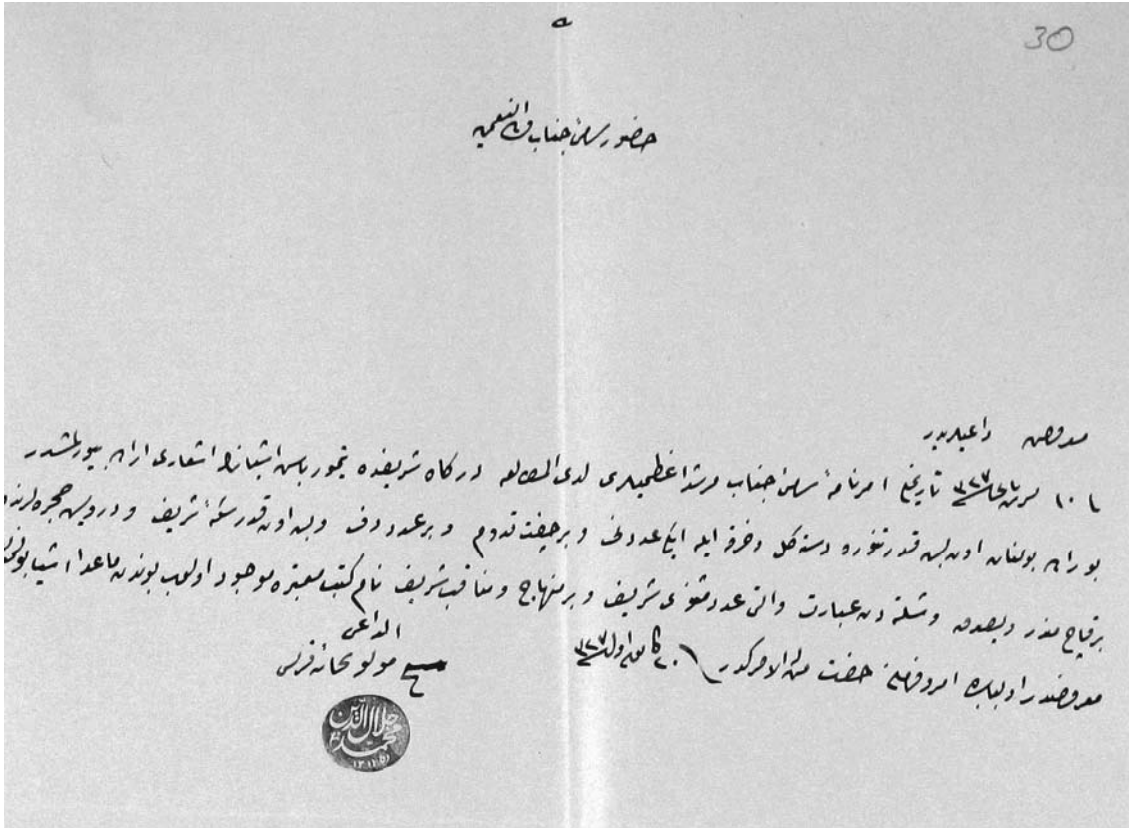 30
حضور سامئ جناب ولی النعمیه
معروض داعیلریدر
١٠ تشرین ثانی ٣٢٧ تاریخلی امرنامهٔ سامئ جناب مرشد اعظمیلری لدی المطالعه درکاه شریفده اشیانك اشعاری اراده بیورلمشدر
بوراده بولنان اون بش قدر تنوره دسته كل و خرقه ایله ایكی عدد نی و بر جفت قدوم و بر عدد دف و بش اون قدر سكهٔ شریف و درویش حجره لرنده
بر قاچ مندر و یصدق و شلته دن عبارت والتی عدد مثنوی شریف و بر منهاج و مناقب شریف نام كتب معتبره موجود اولوب بوندن ماعدا اشیا
معروضدر اولبابده امر و فرمان حضرت من له الامركدر ٢٠ كانون اول ٣٢٧
الداعی
شیخ مولویخانهٔ
محمد جلال الدین